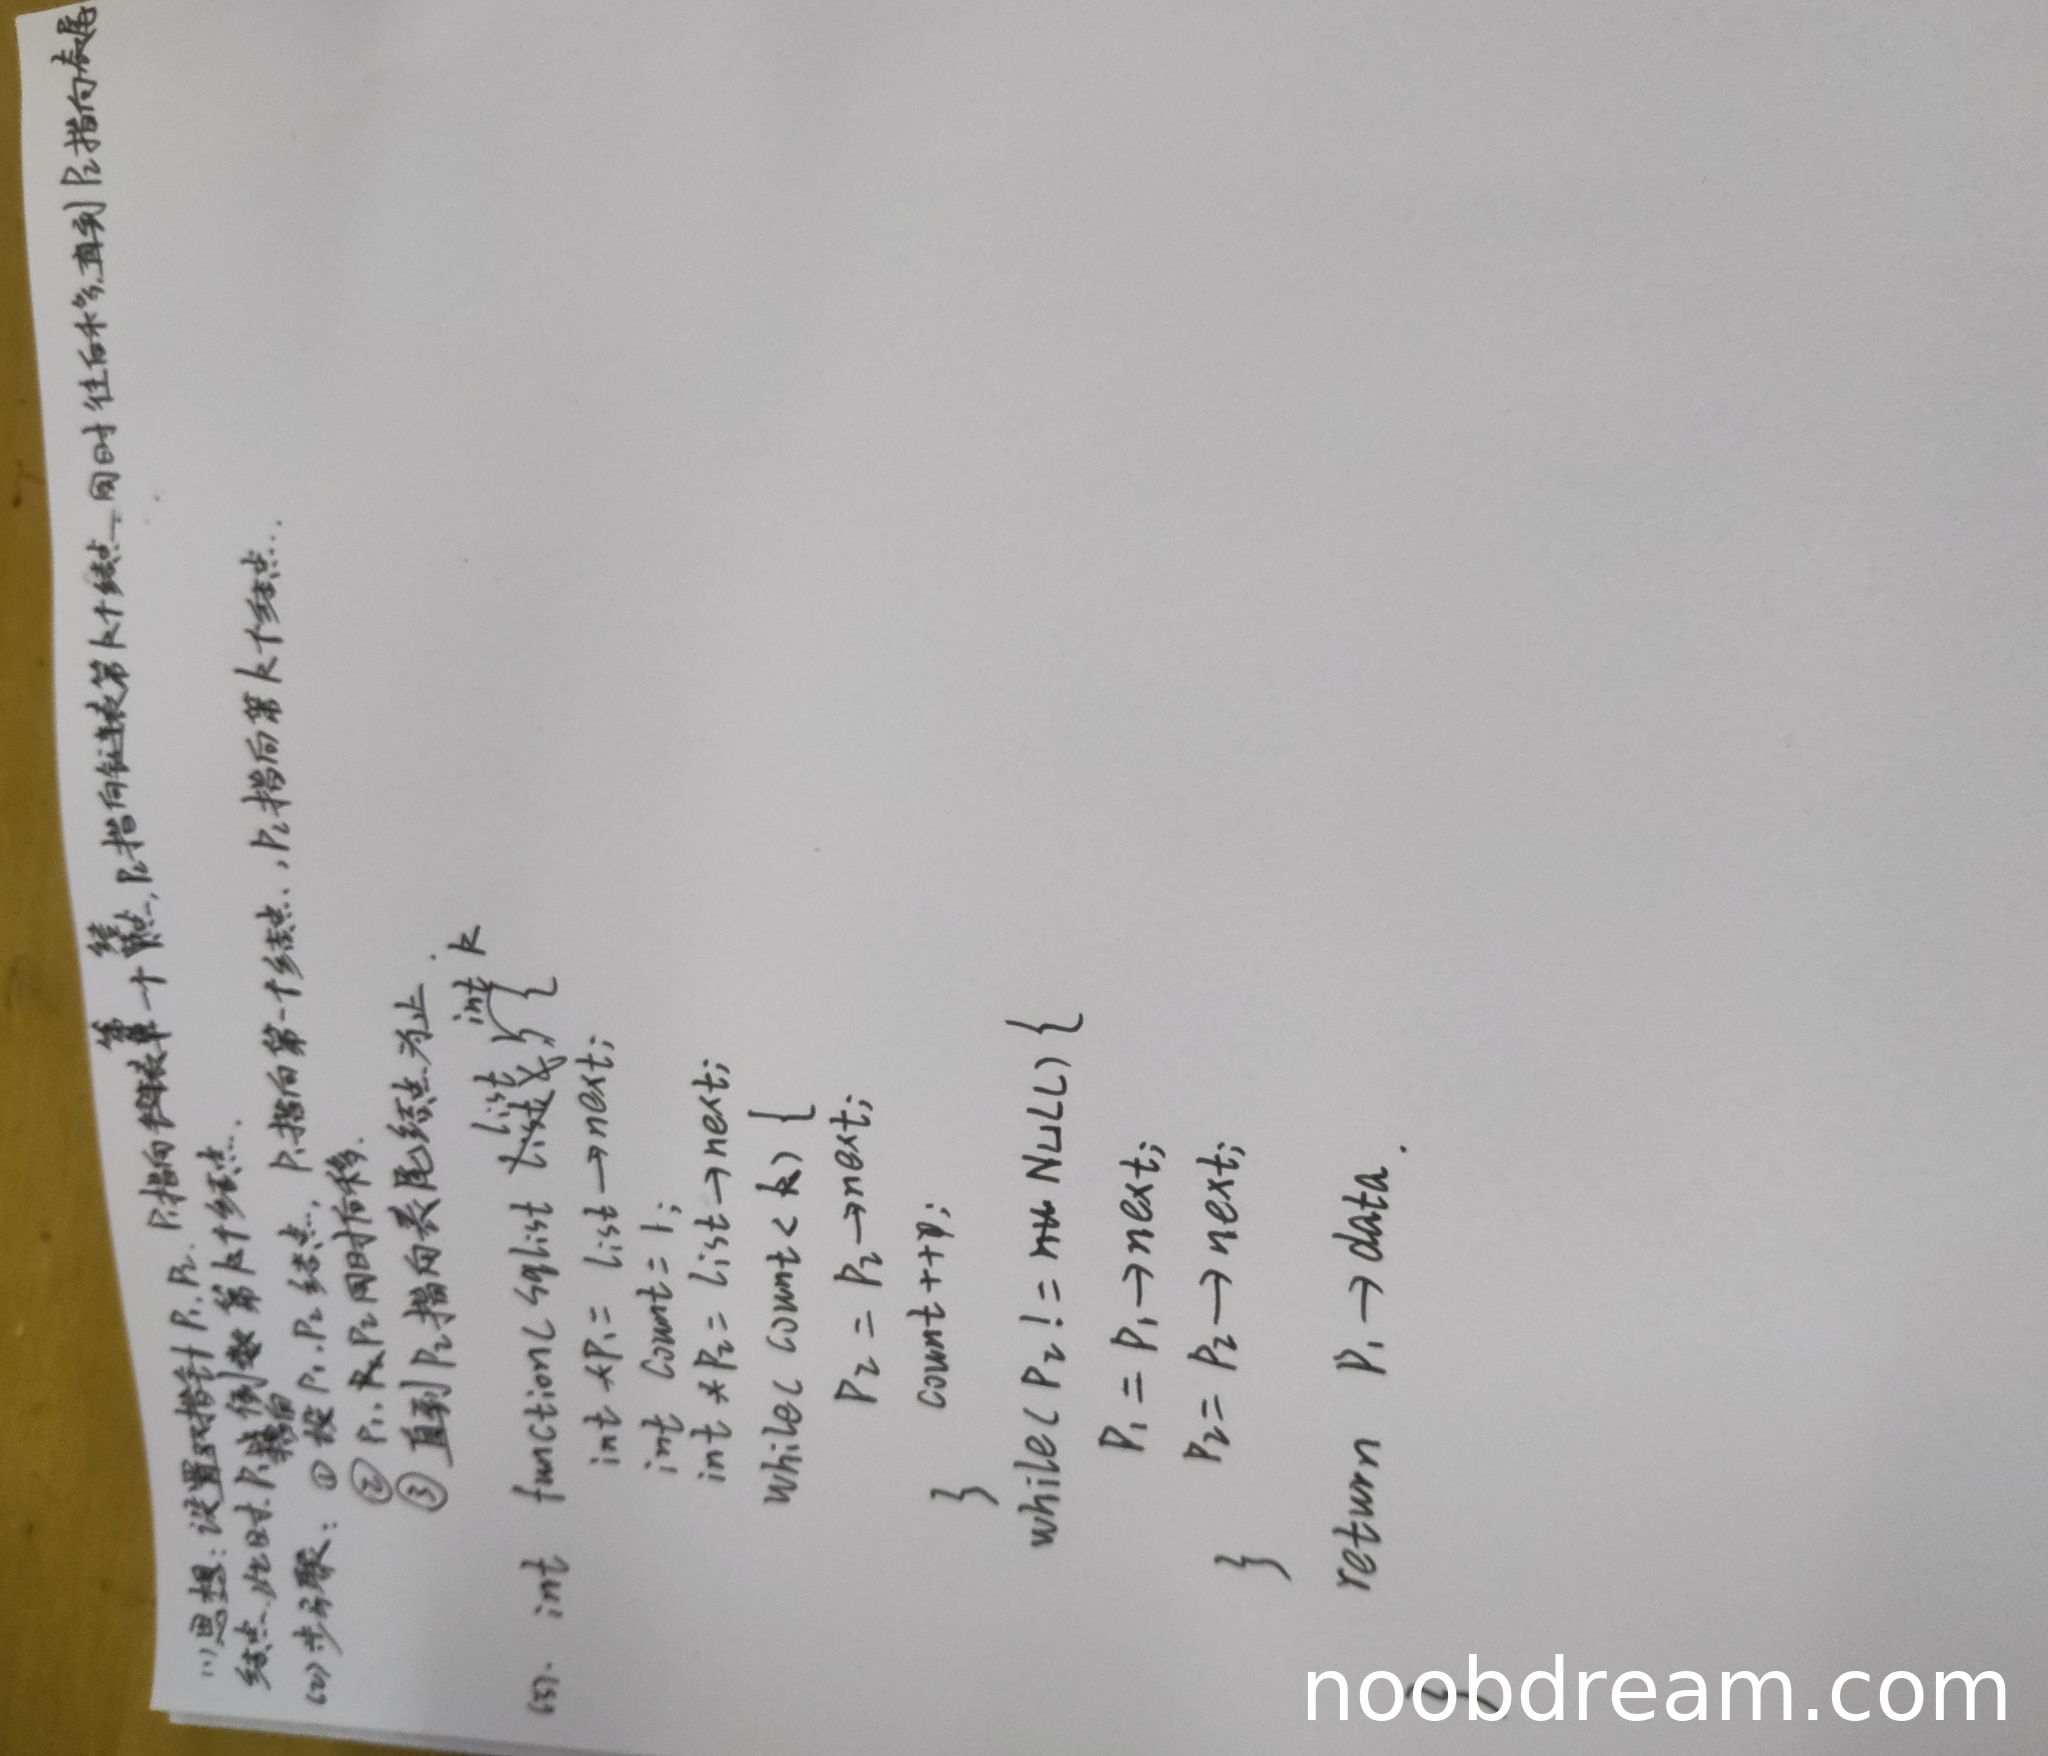 (1)思想：设置双指针P₁,P₂. P₁指向链表第一个结点,P₂指向链表第k个结点,同时往后移,直到P₂指向表尾
结点,此时P₁指向倒数第k个结点.
(2)步骤：①设P₁,P₂结点, P₁指向第一个结点,P₂指向第k个结点.
②P₁,P₂同时后移.
③直到P₂指向表尾结点为止.
(3). int function(sqlist list, int k){
int *P₁= list→next;
int count=1;
int *P₂= list→next;
while(count<k){
P₂=P₂→next;
count++;
}
while(P₂!= NULL){
P₁=P₁→next;
P₂=P₂→next;
}
return P₁→data.
}
noobdream.com